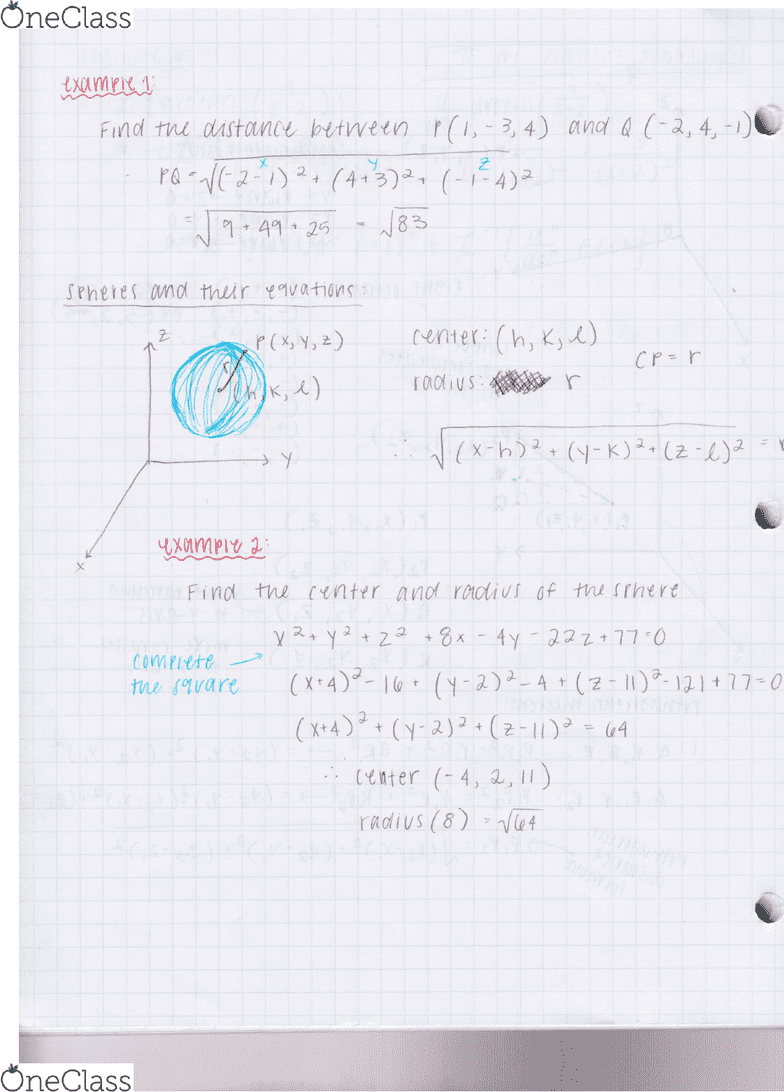 OneClass
example 1:
Find the distance between P(1, -3, 4) and Q (-2, 4, -1)
x y z
PQ = √(-2-1)² + (4+3)² + (-1-4)²
= √9 + 49 + 25 = √83
spheres and their equations:
z
P(x, y, z)
center: (h, k, l)
r
CP = r
(h, k, l)
radius: r
∴ √(x-h)² + (y-k)² + (z-l)² = r
y
x
example 2:
Find the center and radius of the sphere
x² + y² + z² + 8x - 4y - 22z + 77 = 0
complete
the square
(x+4)² - 16 + (y-2)² - 4 + (z-11)² - 121 + 77 = 0
(x+4)² + (y-2)² + (z-11)² = 64
∴ center (-4, 2, 11)
radius (8) = √64
OneClass